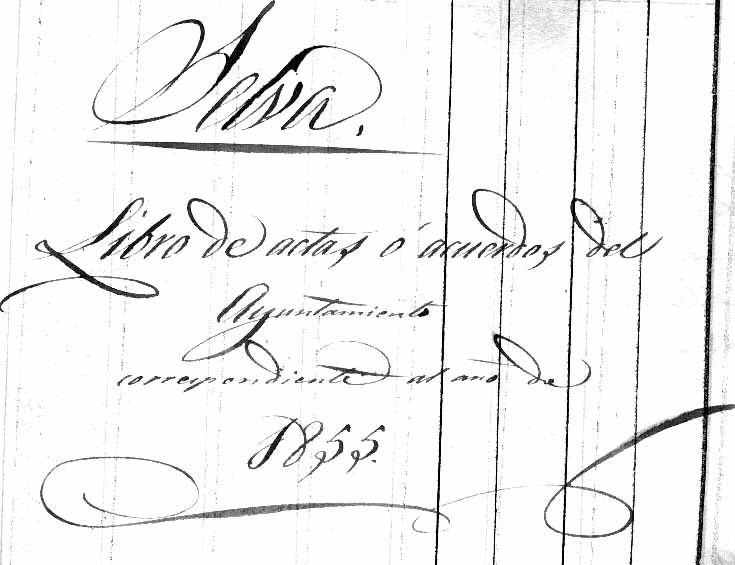 Selva.
Libro de actas ó acuerdos del
Ayuntamiento
correspondiente al año de
1855.